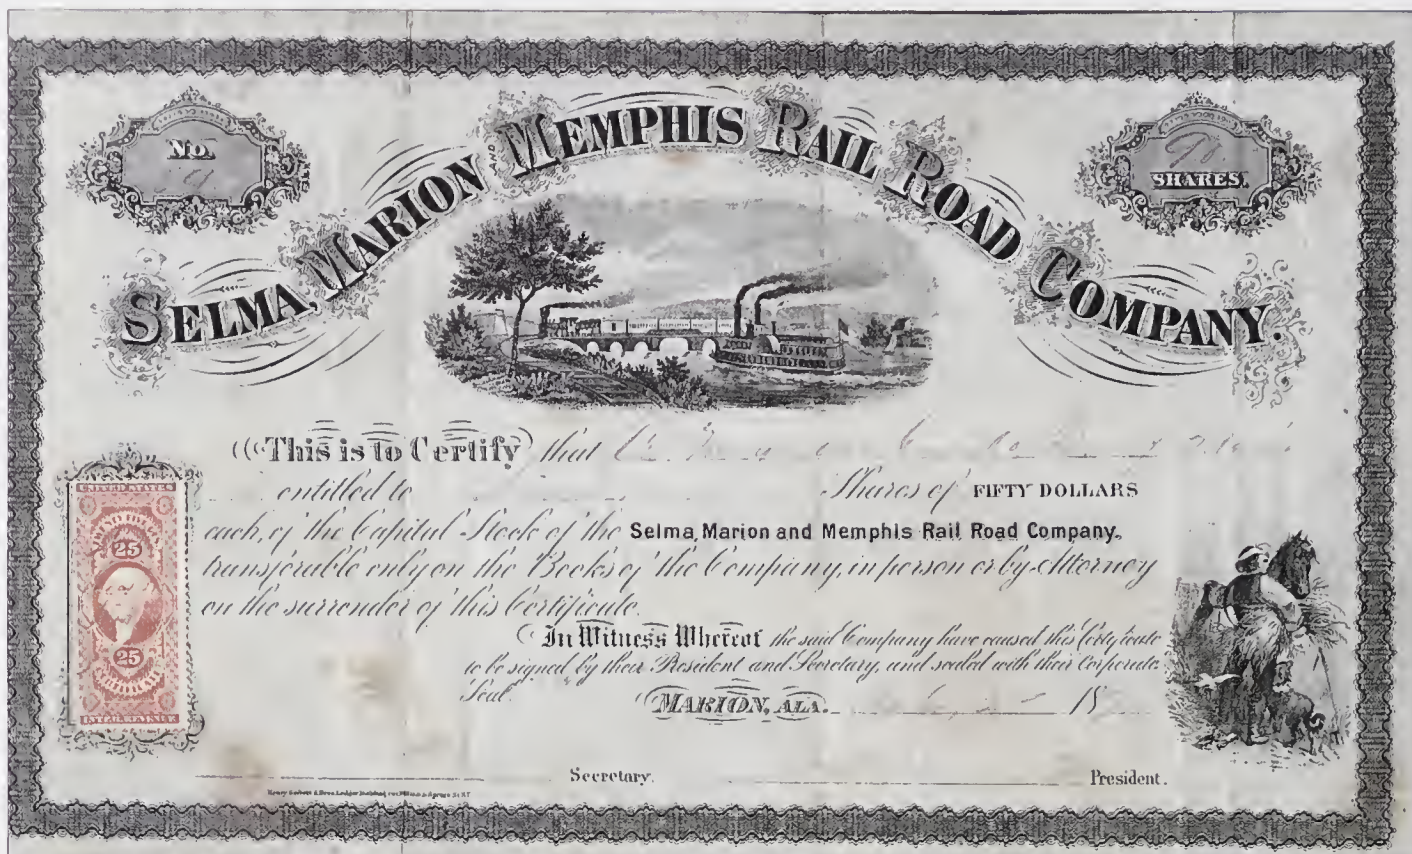 No.
SHARES.
SELMA, MARION AND MEMPHIS RAIL ROAD COMPANY.
This is to Certify that
entitled to Shares of FIFTY DOLLARS
each, of the Capital Stock of the Selma, Marion and Memphis Rail Road Company,
transferable only on the Books of the Company, in person or by Attorney
on the surrender of this Certificate.
In Witness Whereof the said Company have caused this Certificate
to be signed by their President and Secretary, and sealed with their Corporate
Seal.
MARION, ALA. 18
UNITED STATES
25
25
CERTIFICATE
INTER. REVENUE
Secretary. President.